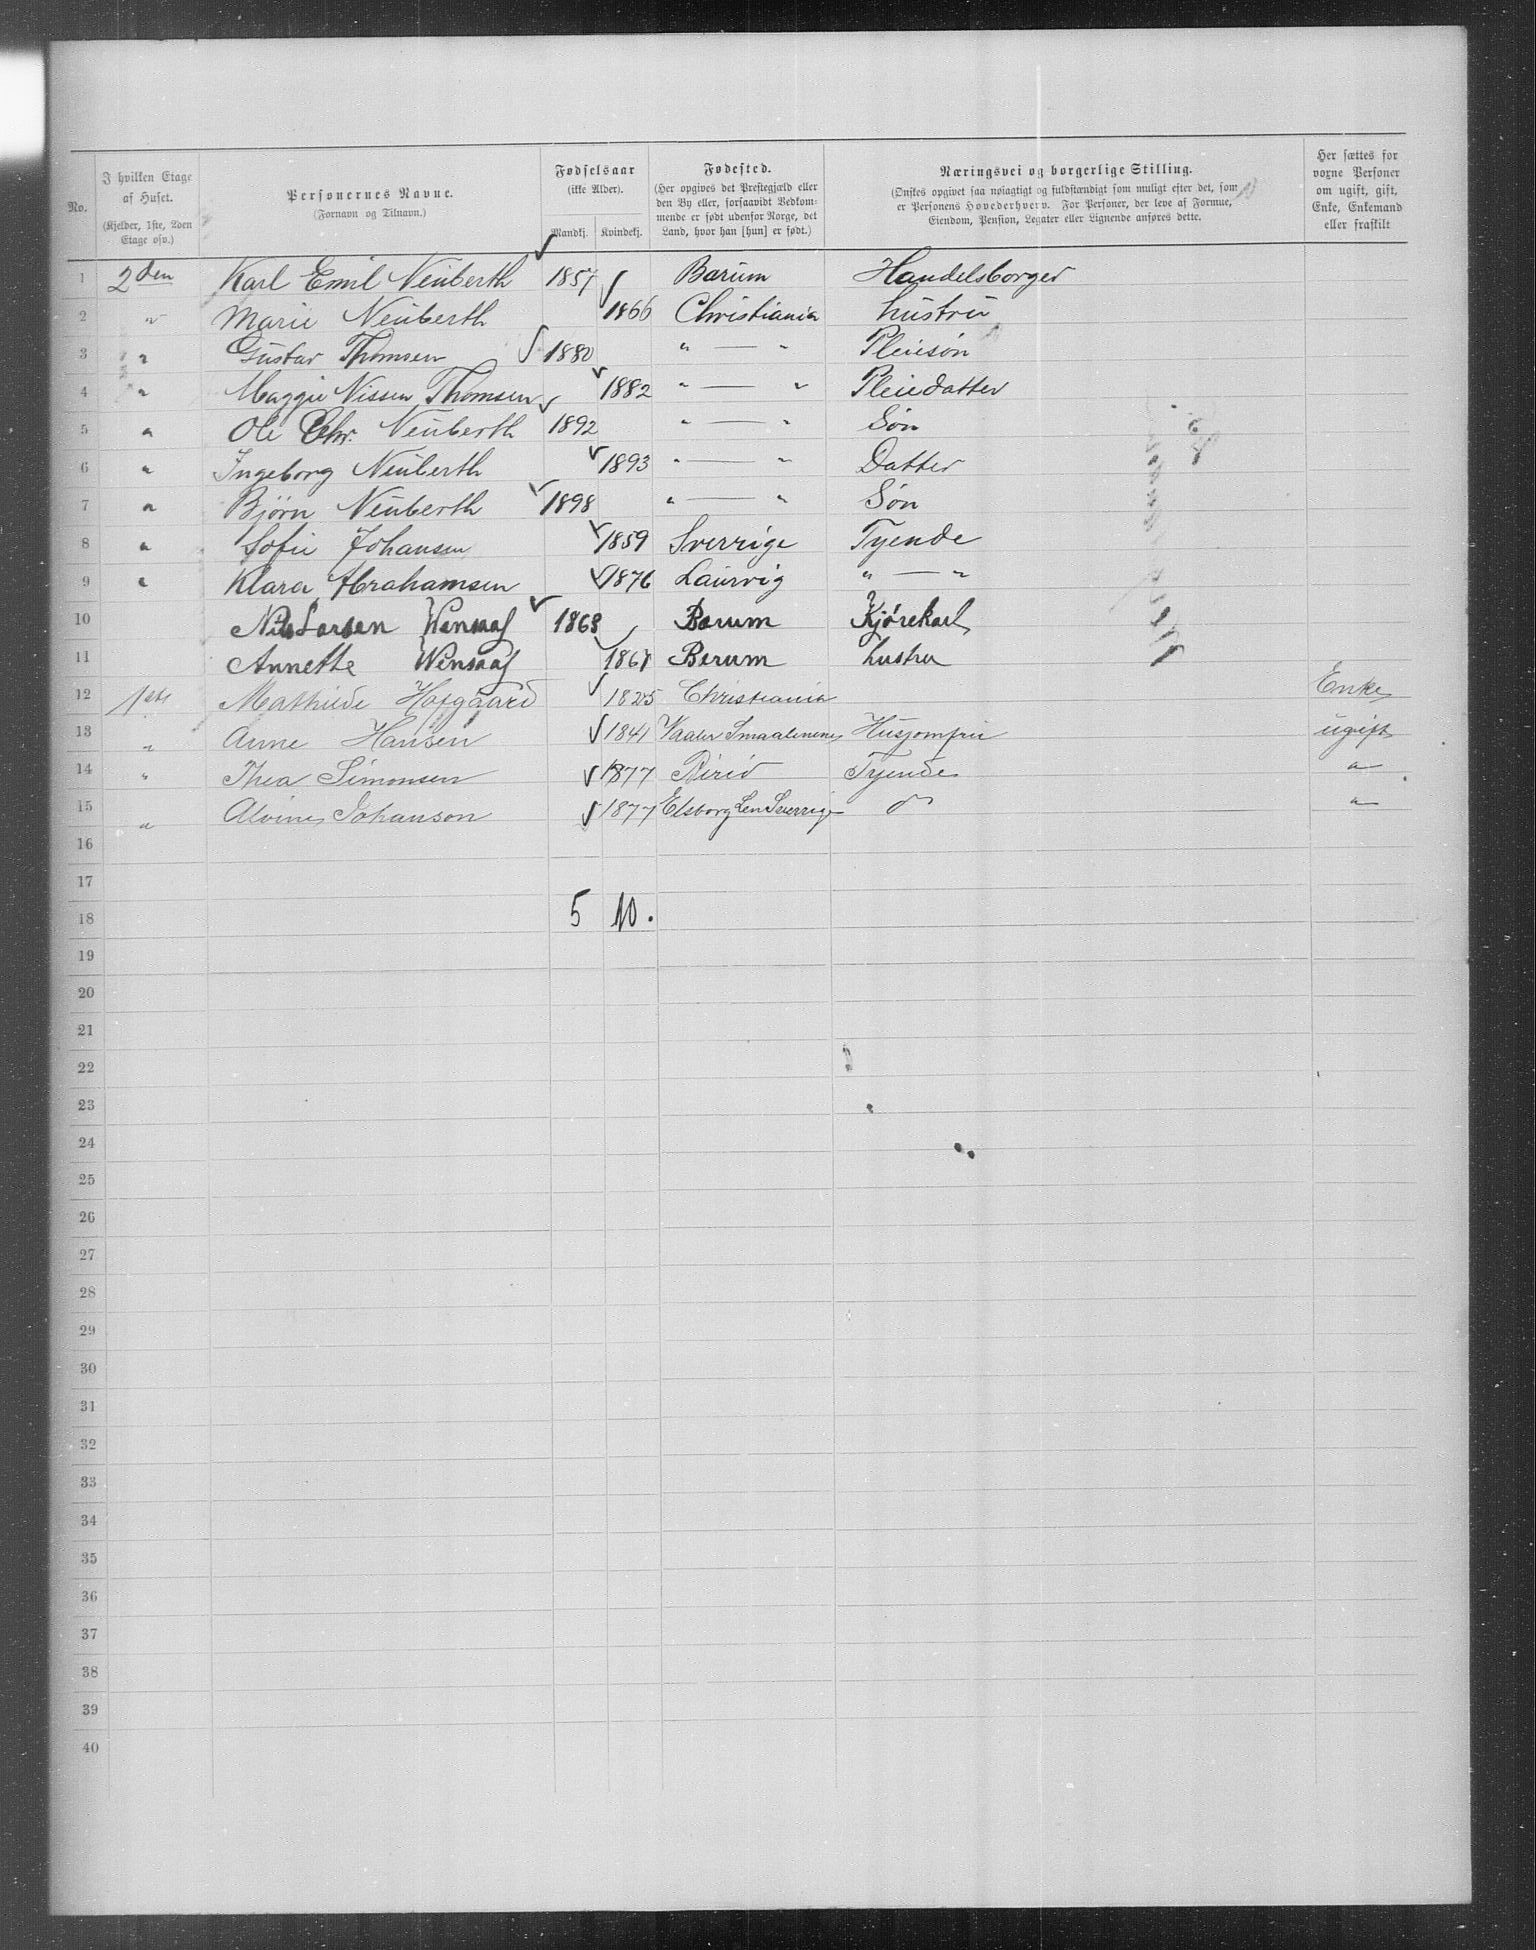 No. | I hvilken Etage af Huset. (Kjelder, 1ste, 2den Etage osv.) | Personernes Navne. (Fornavn og Tilnavn.) | Fødselsaar (ikke Alder). Mandkj. | Kvindekj. | Fødested. (Her opgives det Prestegjæld eller den By eller, forsaavidt Vedkommende er født udenfor Norge, det Land, hvor han [hun] er født.) | Næringsvei og borgerlige Stilling. (Ønskes opgivet saa nøiagtigt og fuldstændigt som muligt efter det, som er Personens Hovederhverv. For Personer, der leve af Formue, Eiendom, Pension, Legater eller Lignende anføres dette.) | Her sættes for voxne Personer om ugift, gift, Enke, Enkemand eller fraskilt
1 2den Karl Emil Neuberth 1857 Barum Handelsborger
2 " Marie Neuberth 1866 Christiania hustru
3 " Gustav Thomsen 1880 " — " Pleiesøn
4 " Maggie Nissen Thomsen 1882 " — " Pleiedatter
5 " Ole Chr. Neuberth 1892 " — " Søn
6 " Ingeborg Neuberth 1893 " — " Datter
7 " Bjørn Neuberth 1898 " — " Søn
8 " Sofie Johansen 1859 Sverrige Tyende
9 " Klara Abrahamsen 1876 Laurvig " — "
10 Nils Larsen Wensaas 1868 Barum Kjørekarl
11 Annette Wensaas 1867 Berum hustru
12 1ste Mathilde Hofgaard 1825 Christiania Enke
13 " Anne Hansen 1841 Vaaler Smaalenene Husjomfru ugift
14 " Thea Simonsen 1877 Birid Tyende "
15 " Alvine Johanson 1877 Elsborg Len Sverrige do "
16
17
18 5 10.
19
20
21
22
23
24
25
26
27
28
29
30
31
32
33
34
35
36
37
38
39
40